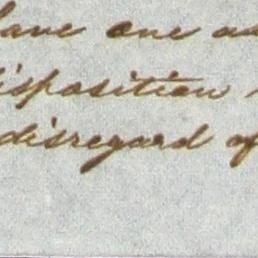 have one as
disposition
disregard of